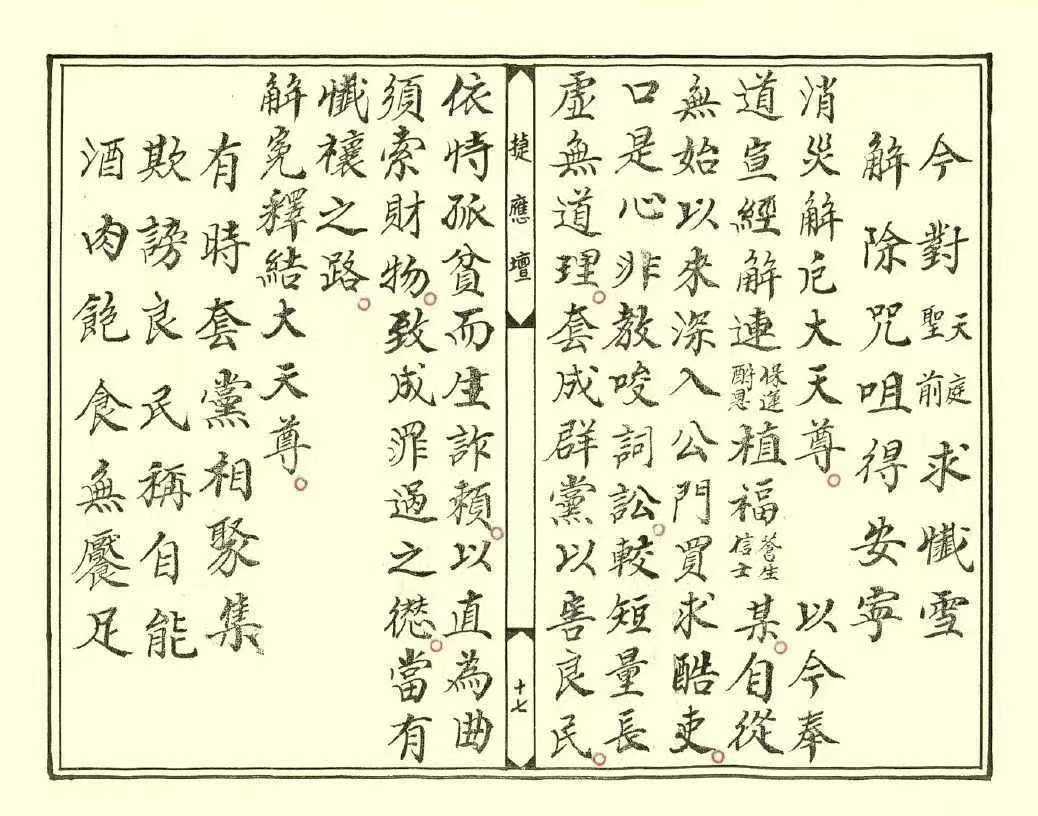 今對天庭聖前求懺雪
解除咒咀得安寧
消災解厄大天尊 以今奉
道宣經解連保運酧恩植福蒼生信士某自從
無始以來深入公門買求酷吏
口是心非教唆詞訟較短量長
虛無道理套成群黨以害良民
捷應壇
十七
依恃孤貧而生詐賴以直為曲
須索財物致成罪過之愆當有
懺禳之路
解冤釋結大天尊
有時套黨相聚集
欺謗良民稱自能
酒肉飽食無饜足